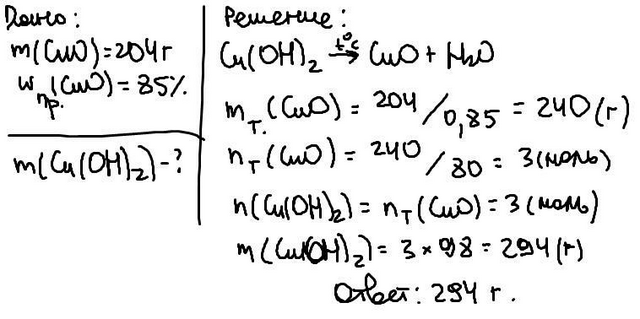 Дано:
m(CuO)=204г
w пр.(CuO)=85%
m(Cu(OH)₂)-?
Решение:
Cu(OH)₂ t°c→ CuO+H₂O
mт.(CuO)= 204/0,85 = 240(г)
nт(CuO)= 240/80 = 3(моль)
n(Cu(OH)₂)= nт(CuO)=3(моль)
m(Cu(OH)₂)= 3×98=294(г)
Ответ: 294 г.